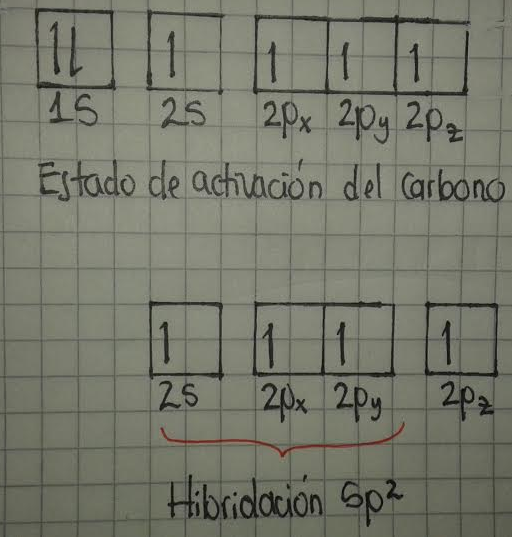 1l 1 1 1 1
1S 2S 2px 2py 2pz
Estado de activación del carbono
1 1 1 1
2S 2px 2py 2pz
Hibridación Sp²